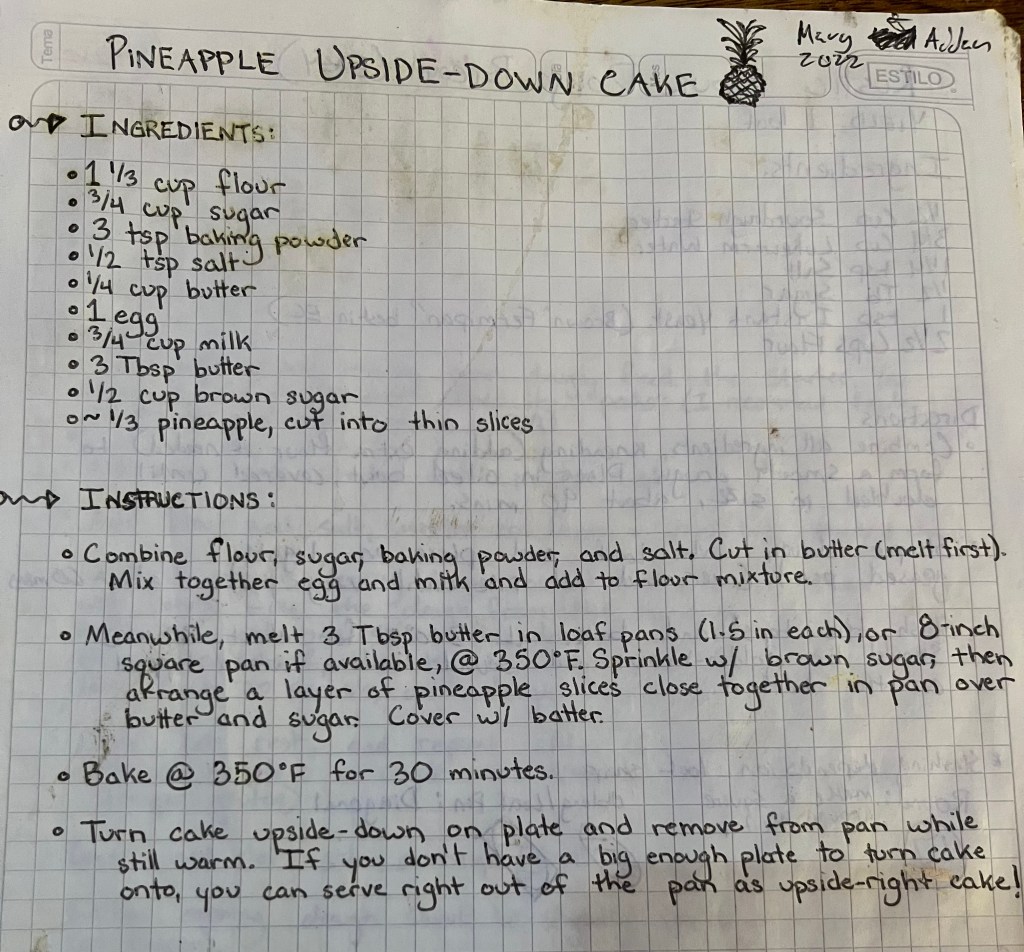 Tema
PINEAPPLE UPSIDE-DOWN CAKE
Mary Adden
2022
ESTILO
INGREDIENTS:
• 1 1/3 cup flour
• 3/4 cup sugar
• 3 tsp baking powder
• 1/2 tsp salt
• 1/4 cup butter
• 1 egg
• 3/4 cup milk
• 3 Tbsp butter
• 1/2 cup brown sugar
• ~ 1/3 pineapple, cut into thin slices
INSTRUCTIONS:
• Combine flour, sugar, baking powder, and salt. Cut in butter (melt first).
Mix together egg and milk and add to flour mixture.
• Meanwhile, melt 3 Tbsp butter in loaf pans (1.5 in each), or 8-inch
square pan if available, @ 350°F. Sprinkle w/ brown sugar, then
arrange a layer of pineapple slices close together in pan over
butter and sugar. Cover w/ batter.
• Bake @ 350°F for 30 minutes.
• Turn cake upside-down on plate and remove from pan while
still warm. If you don't have a big enough plate to turn cake
onto, you can serve right out of the pan as upside-right cake!